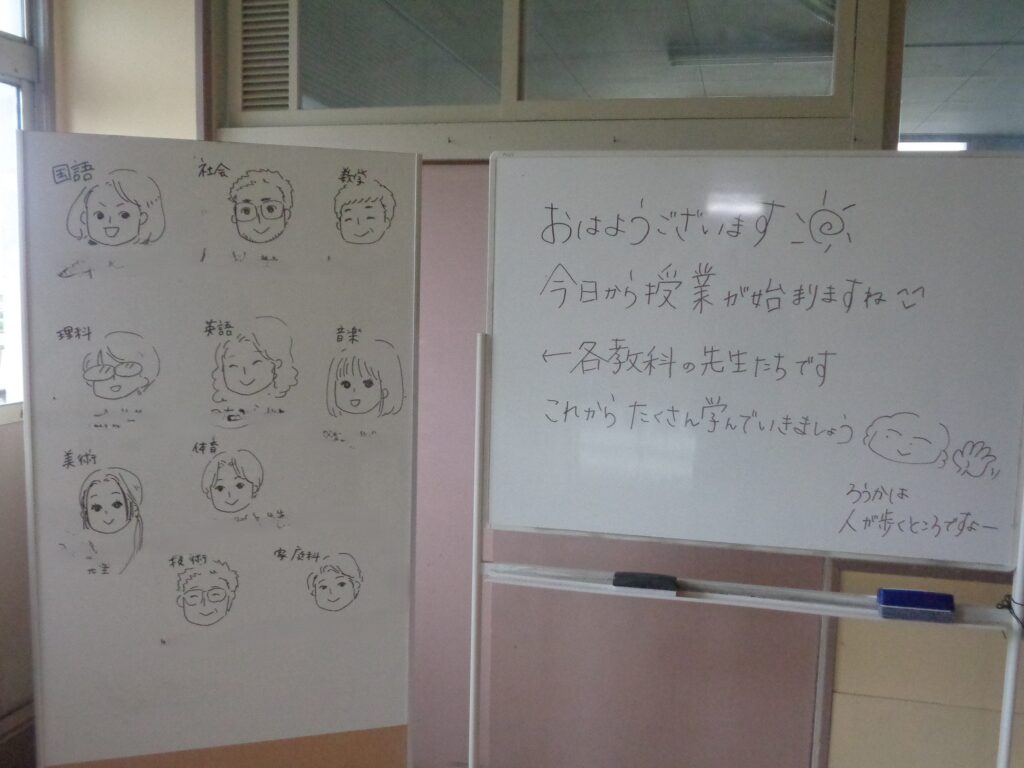 国語
社会
数学
理科
英語
音楽
美術
体育
先生
技術
家庭科
おはようございます
今日から授業が始まりますね
←各教科の先生たちです
これからたくさん学んでいきましょう
ろうかは
人が歩くところですよー